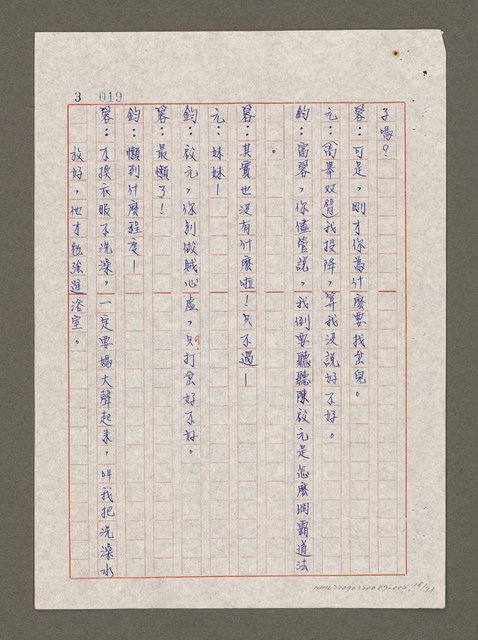 3 019
子嗎？
蓉：可是，剛才你為什麼要找岔兒。
元：（高舉双臂）我投降，算我沒說好不好。
鈞：富蓉，你儘管說，我倒要聽聽陳啟元是怎麼個霸道法
。
蓉：其實也沒有什麼啦！只不過—
元：妹妹！
鈞：啟元，你別做賊心虛，只打岔好不好。
蓉：最懶了！
鈞：懶到什麼程度—
蓉：不換衣服不洗澡，一定要媽大聲起來，叫我把洗澡水
放好，他才勉強進浴室。
18/71